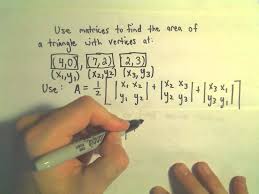 Use matrices to find the area of
a triangle with vertices at:
(4,0) (7,2) (2,3)
(x₁,y₁) (x₂,y₂) (x₃,y₃)
Use: A = 1/2 [ |x₁ x₂| + |x₂ x₃| + |x₃ x₁| ]
|y₁ y₂| |y₂ y₃| |y₃ y₁|